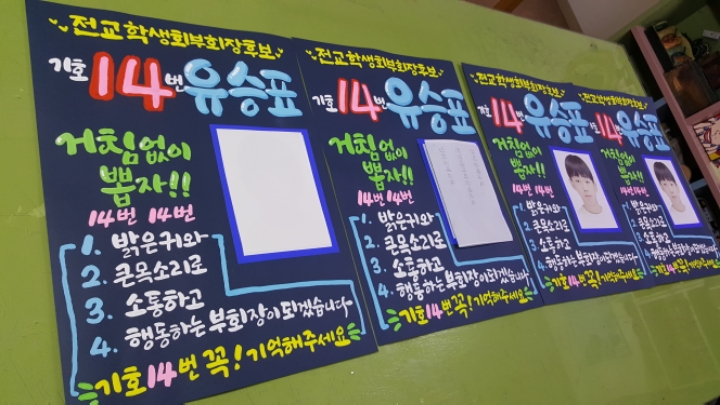 전교학생회부회장후보
기호 14번 유승표
거침없이
뽑자!!
14번 14번
1. 밝은귀와
2. 큰목소리로
3. 소통하고
4. 행동하는 부회장이되겠습니다
기호14번 꼭! 기억해주세요
전교학생회부회장후보
기호 14번 유승표
거침없이
뽑자!!
14번 14번
1. 밝은귀와
2. 큰목소리로
3. 소통하고
4. 행동하는 부회장이되겠습니다
기호14번 꼭! 기억해주세요
전교학생회부회장후보
기호 14번 유승표
거침없이
뽑자!!
14번 14번
1. 밝은귀와
2. 큰목소리로
3. 소통하고
4. 행동하는 부회장이되겠습니다
기호14번 꼭! 기억해주세요
전교학생회부회장후보
기호 14번 유승표
거침없이
뽑자!!
14번 14번
1. 밝은귀와
2. 큰목소리로
3. 소통하고
4. 행동하는 부회장이되겠습니다
기호14번 꼭! 기억해주세요